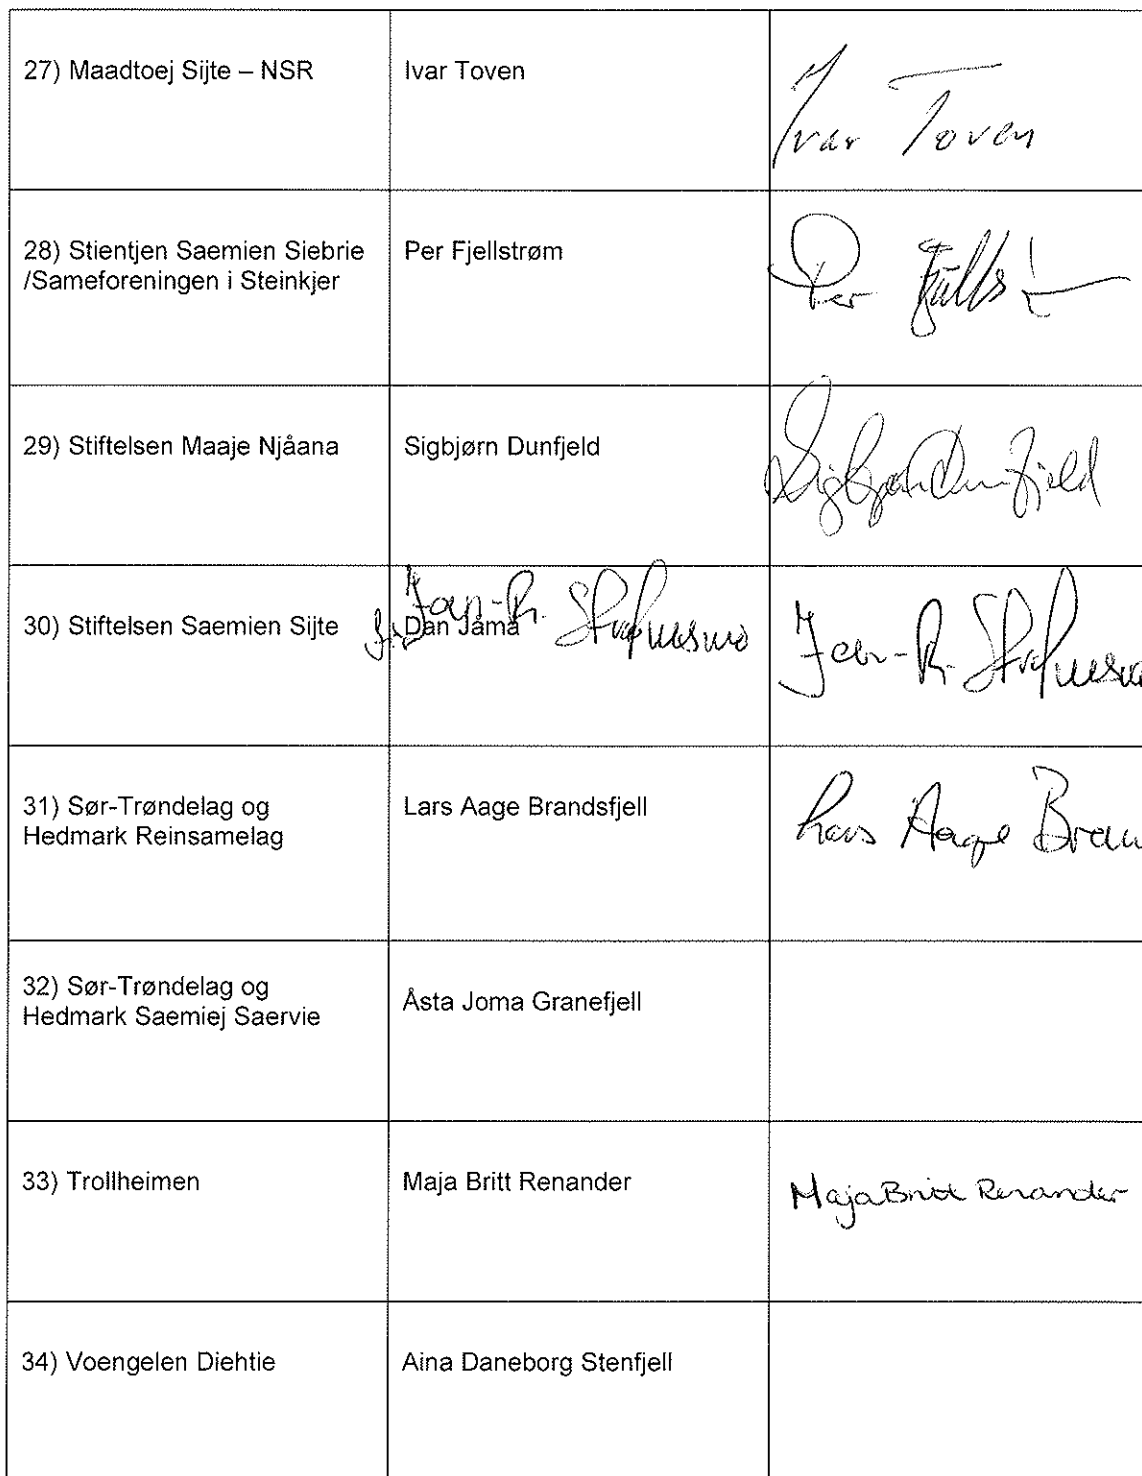 27) Maadtoej Sijte – NSR
Ivar Toven
Ivar Toven
28) Stientjen Saemien Siebrie
/Sameforeningen i Steinkjer
Per Fjellstrøm
Per
29) Stiftelsen Maaje Njåana
Sigbjørn Dunfjeld
Sigbjørn Dunfjeld
30) Stiftelsen Saemien Sijte
Dan Jåma
31) Sør-Trøndelag og
Hedmark Reinsamelag
Lars Aage Brandsfjell
Lars Aage Bran
32) Sør-Trøndelag og
Hedmark Saemiej Saervie
Åsta Joma Granefjell
33) Trollheimen
Maja Britt Renander
Maja Britt Renander
34) Voengelen Diehtie
Aina Daneborg Stenfjell